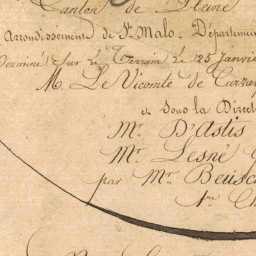 Canton de Pleine
Arrondissement de St. Malo. Département
Terminé sur le Terrain le 25 Janvier
M. Le Vicomte de Curzay
et sous la Direct
Mr. D'Astis
Mr. Lesné
par Mr.
1re